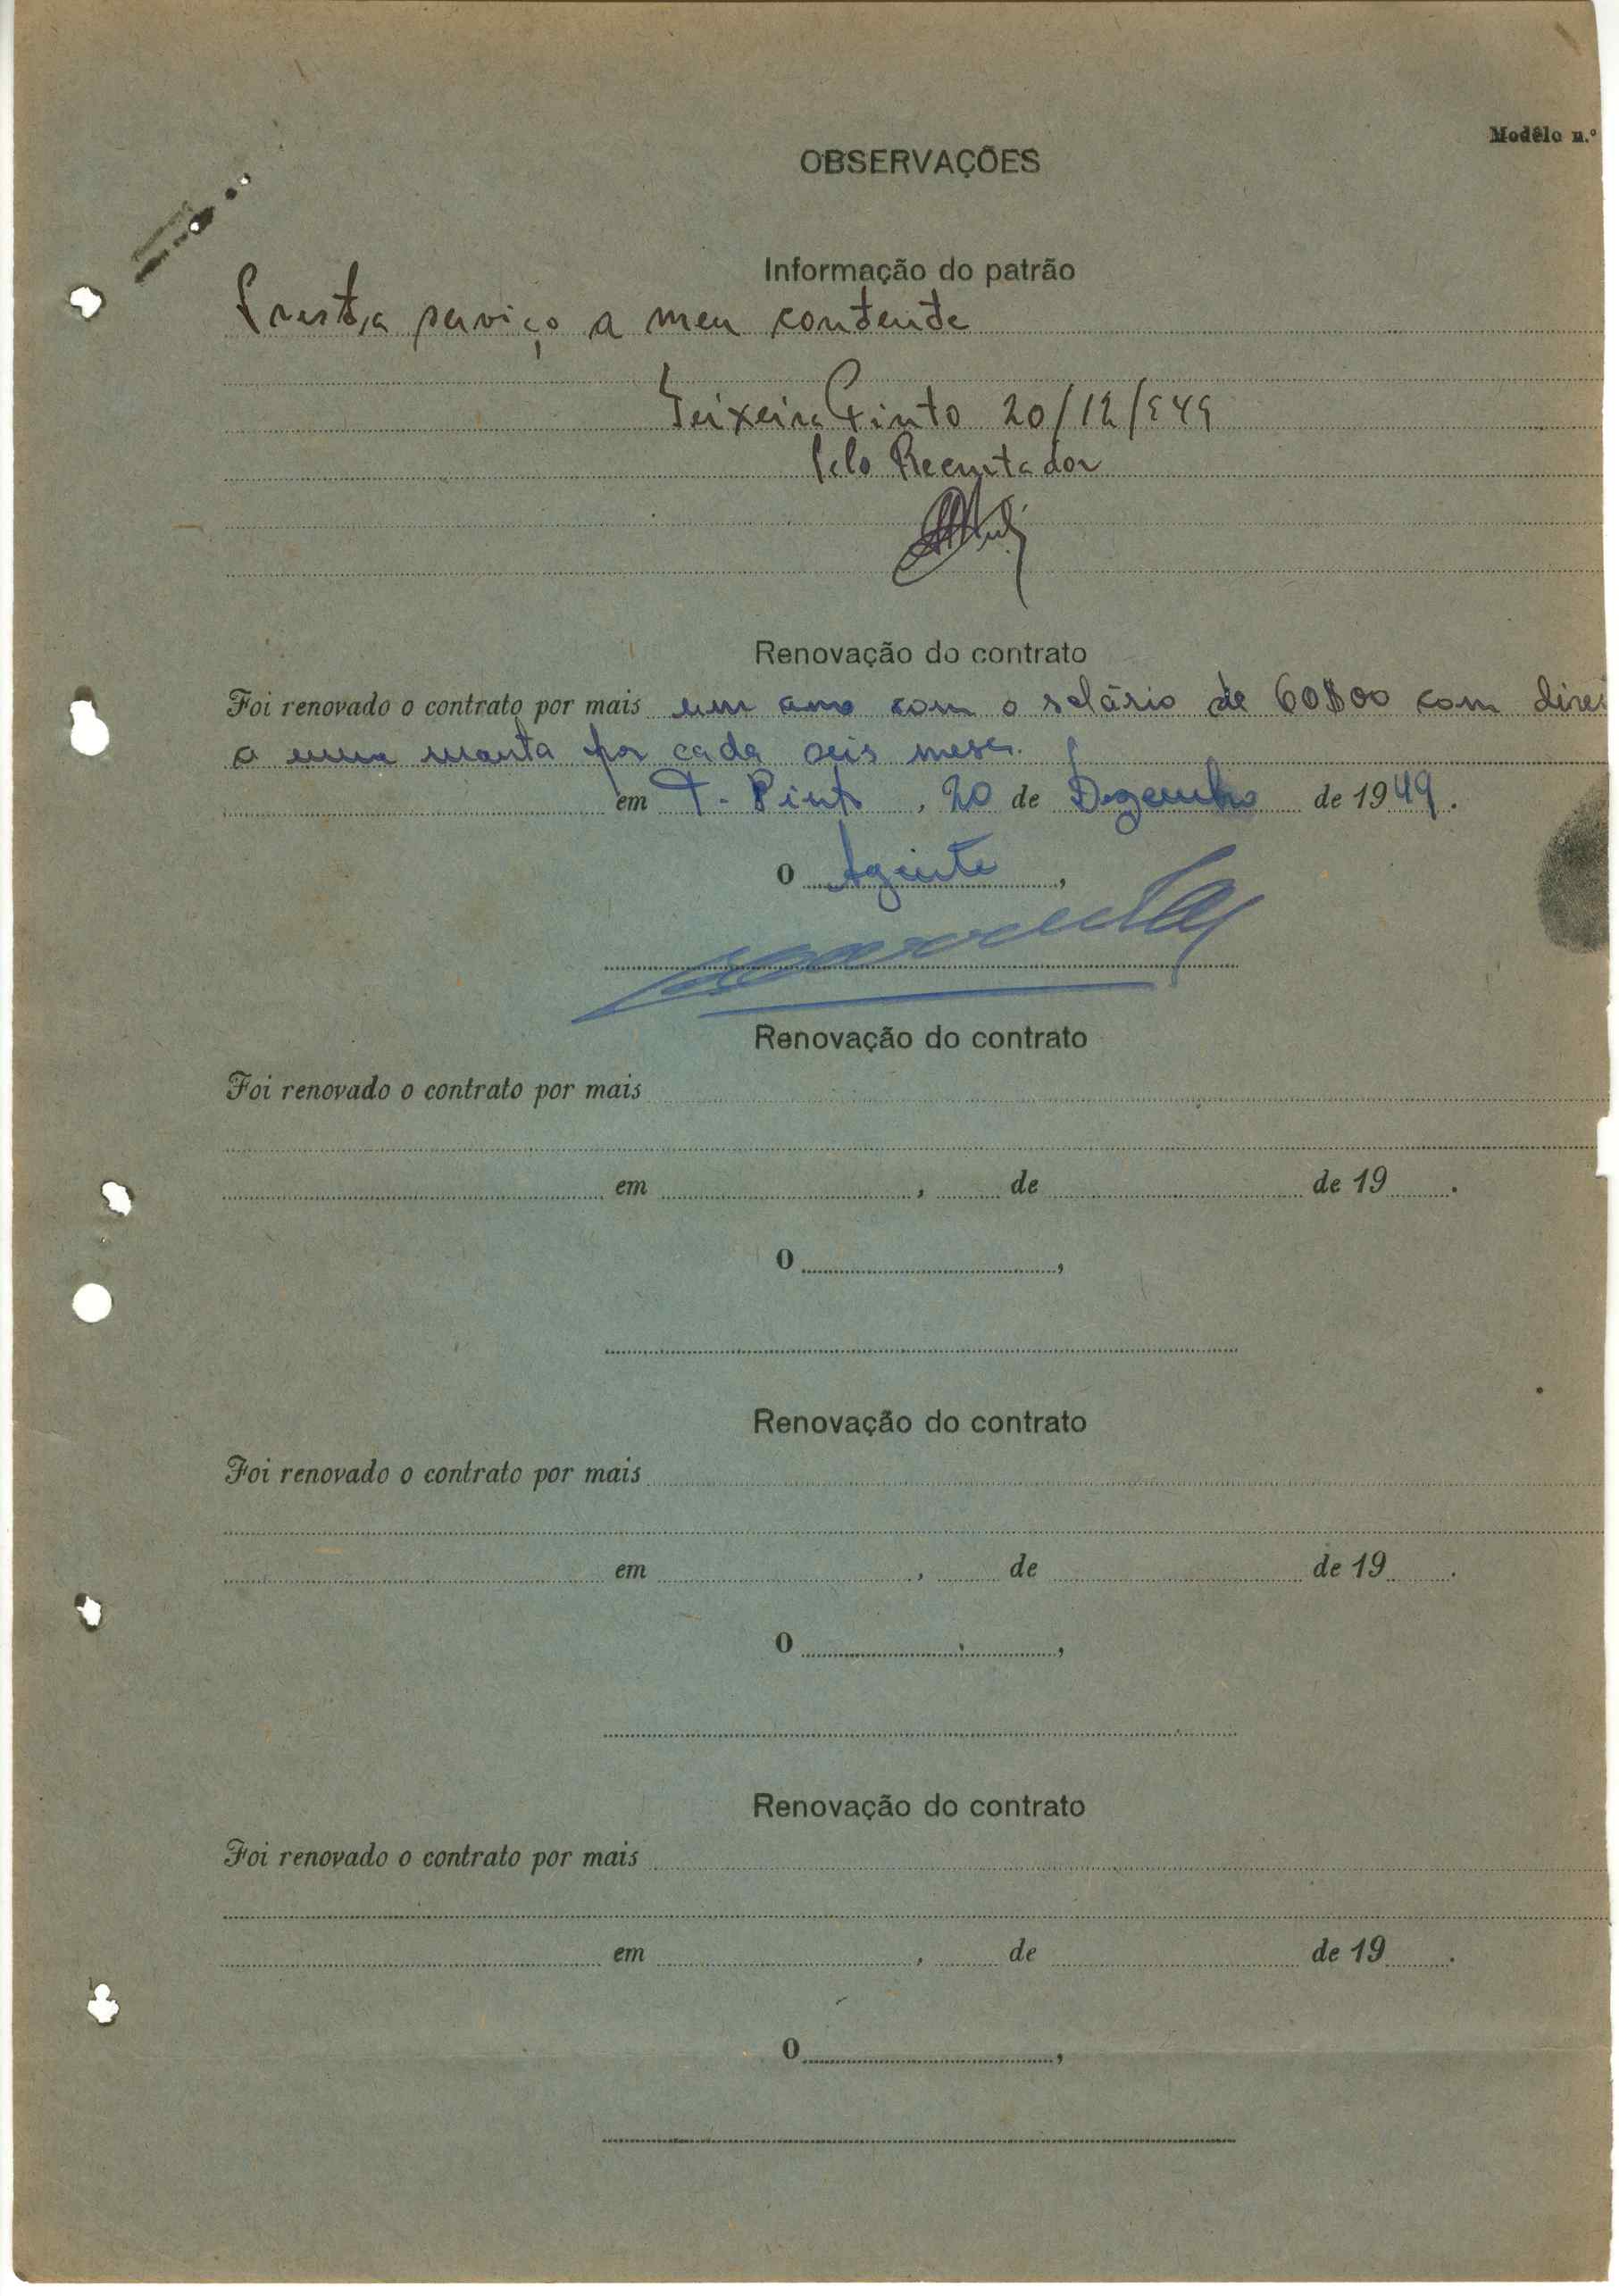 Modêlo n.º
OBSERVAÇÕES
Informação do patrão
Presta serviço a meu contente
Teixeira Pinto 20/12/949
Pelo Recrutador
Renovação do contrato
Foi renovado o contrato por mais um ano com o salário de 60$00 com direi
o uma manta por cada seis meses.
em T. Pinto, 20 de Dezembro de 1949.
O Agente,
Renovação do contrato
Foi renovado o contrato por mais
em , de de 19 .
O ,
Renovação do contrato
Foi renovado o contrato por mais
em , de de 19 .
O ,
Renovação do contrato
Foi renovado o contrato por mais
em , de de 19 .
O ,